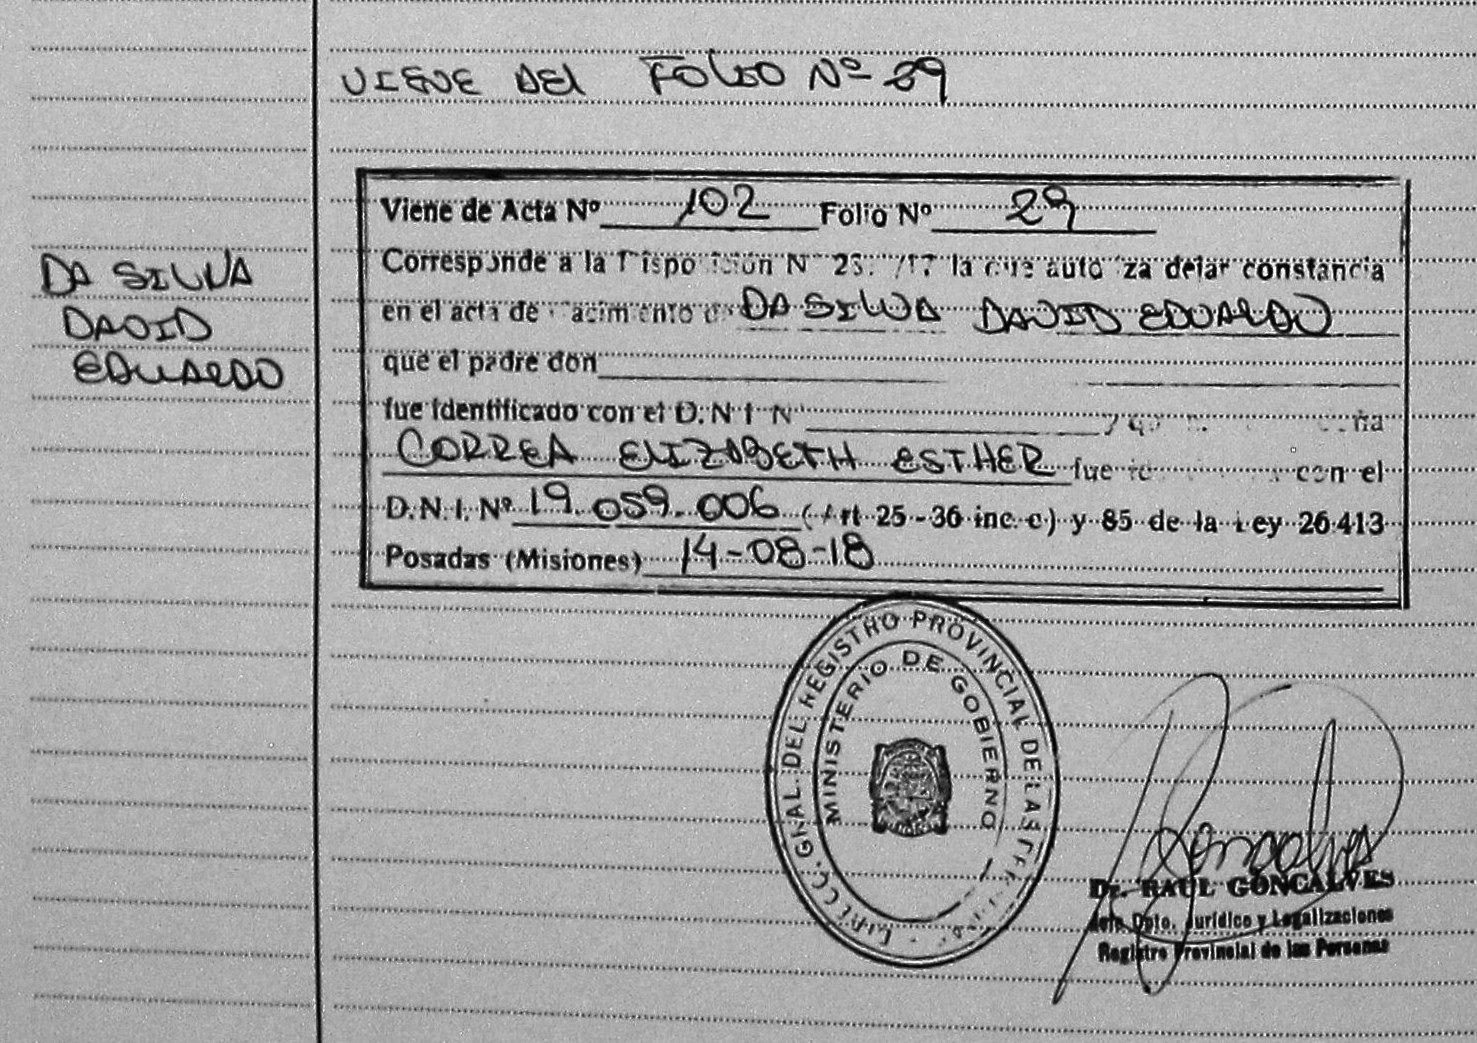 VIENE DEL FOLIO Nº 29
DA SILVA
DAVID
EDUARDO
Viene de Acta Nº 102 Folio Nº 29
Corresponde a la Disposición N 23. /17 la que autoriza dejar constancia
en el acta de nacimiento de DA SILVA DAVID EDUARDO
que el padre don
fue identificado con el D. N. I. N y que ña
CORREA ELIZABETH ESTHER fue con el
D.N.I. Nº 19.059.006 (Art 25-36 inc. c) y 85 de la Ley 26413
Posadas (Misiones) 14-08-18
DIRECC. GRAL. DEL REGISTRO PROVINCIAL DE LAS
MINISTERIO DE GOBIERNO
Goncalves
Dr. RAUL GONCALVES
Jefe Dpto. Jurídico y Legalizaciones
Registro Provincial de las Personas